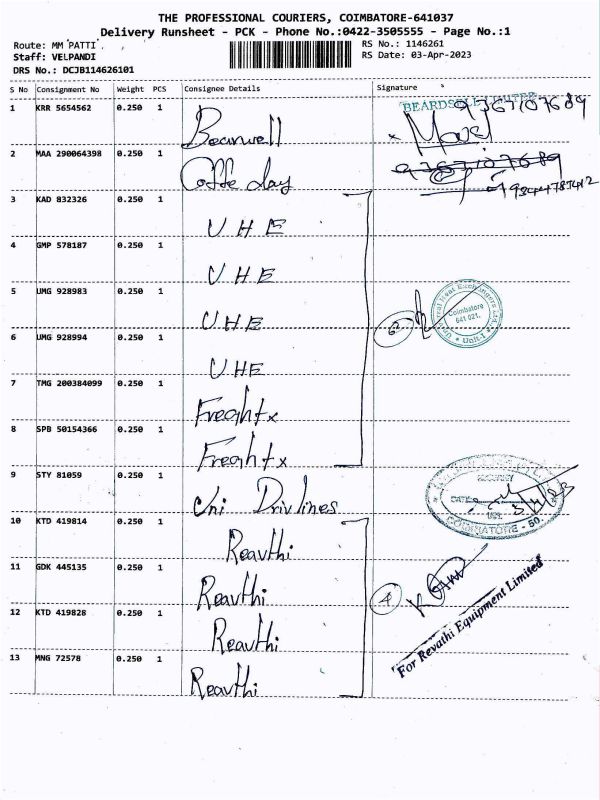 THE PROFESSIONAL COURIERS, COIMBATORE-641037
Delivery Runsheet - PCK - Phone No.:0422-3505555 - Page No.:1
Route: MM PATTI .
Staff: VELPANDI
DRS No.: DCJB114626101
RS No.: 1146261
RS Date: 03-Apr-2023
S No Consignment No Weight PCS Consignee Details Signature
1 KRR 5654562 0.250 1 Bearwell
9367107689
2 MAA 290064398 0.250 1 Coffe day
9367107689
9344787412
3 KAD 832326 0.250 1 UHE
4 GMP 578187 0.250 1 UHE
5 UMG 928983 0.250 1 UHE
6
Universal Heat Exchangers Ltd.
Coimbatore
641 021.
Unit-1
6 UMG 928994 0.250 1 UHE
7 TMG 200384099 0.250 1 Freahtx
8 SPB 50154366 0.250 1 Freahtx
9 STY 81059 0.250 1 Uni Drivlines
DATE
COIMBATORE - 50.
10 KTD 419814 0.250 1 Reavthi
11 GDK 445135 0.250 1 Reavthi
4
For Revathi Equipment Limited
12 KTD 419828 0.250 1 Reavthi
13 MNG 72578 0.250 1 Reavthi